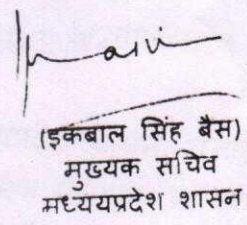 (इकबाल सिंह बैस)
मुख्यक सचिव
मध्ययप्रदेश शासन